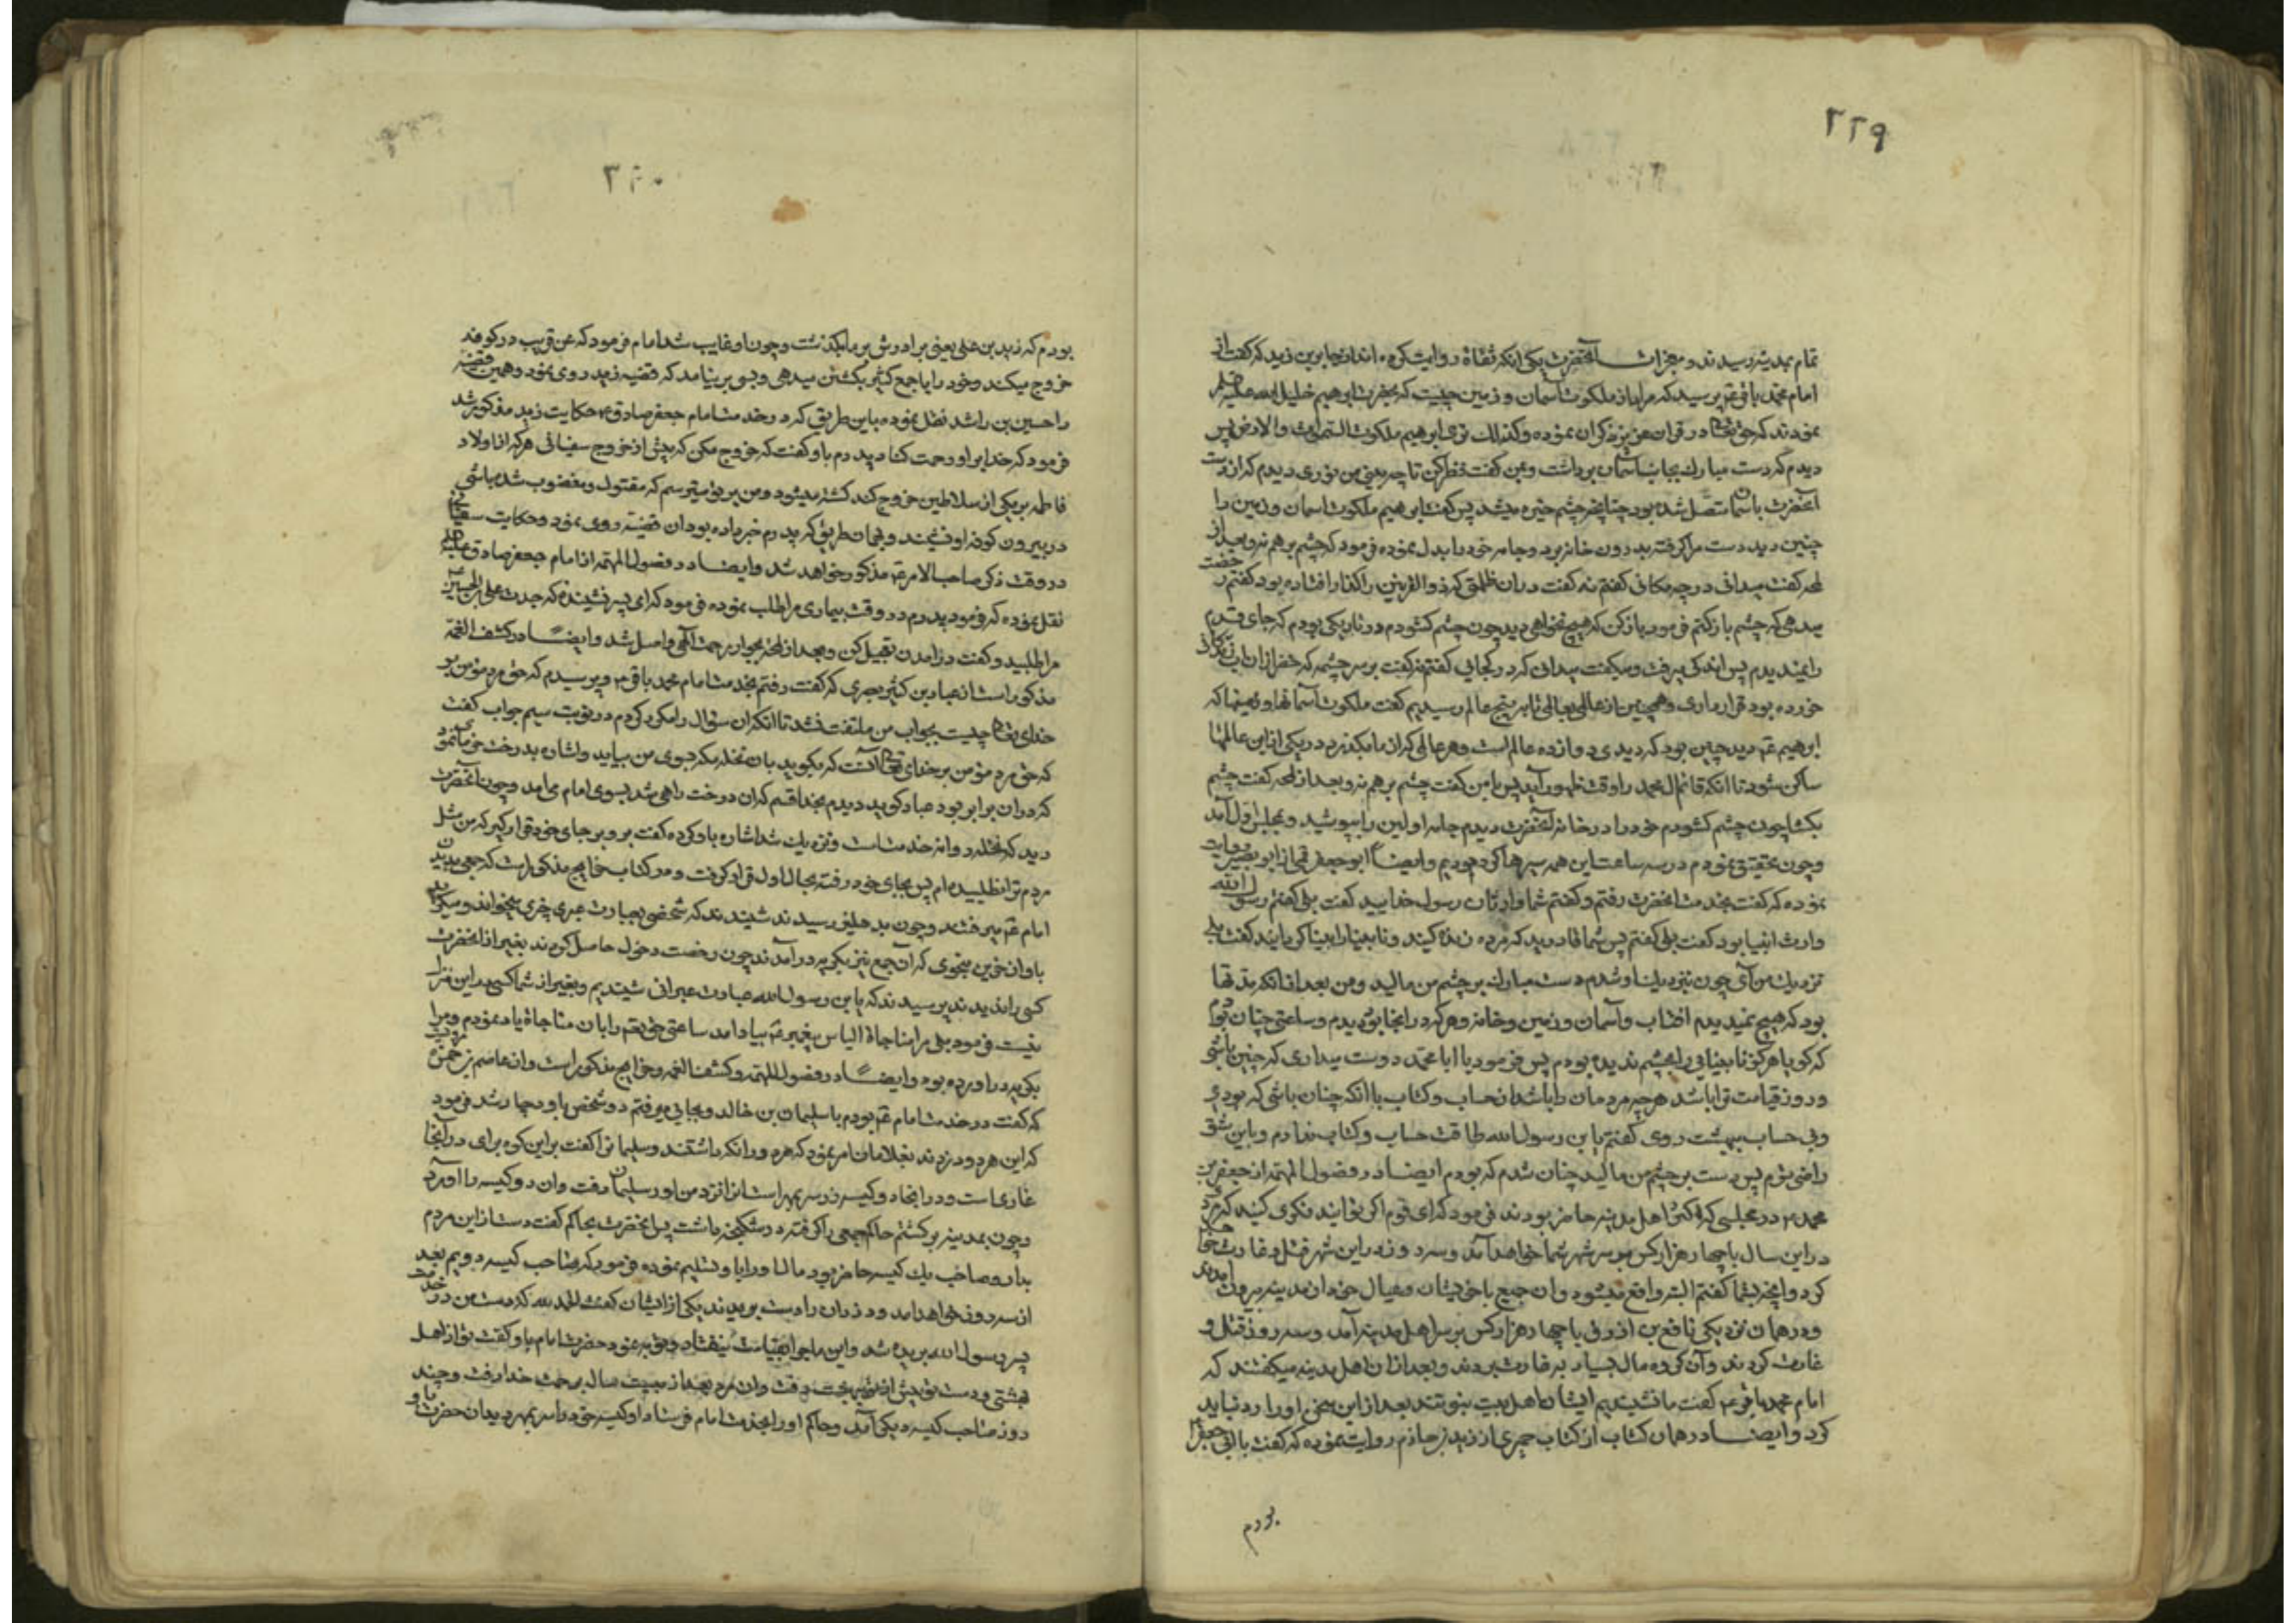 ۲۲۹
تمام بمدینه رسیدند و معجزات آنحضرت یکی انکه ثقاة روایت کرده اند از جابر بن زید که گفت از
امام محمد باقر ع پرسید که مراد از ملکوت آسمان و زمین چیست که بحضرت ابرهیم خلیل الله علیه
نمودند که حق تعالی در قران عزیز ذکر ان نموده وکذلک نری ابرهیم ملکوت السموات والارض پس
دیدم که دست مبارک بجانب آسمان برداشت و بمن گفت نظر کن تا چه بینی من نوری دیدم که از دست
آنحضرت باسمان متصل شده بود چنانچه چشم خیره میشد پس گفت ابرهیم ملکوت اسمان و زمین را
چنین دید دست مرا گرفته بدرون خانه برد و جامه خود را بدل نموده فرمود که چشم بر هم نه و بعد از
لمحه گفت میدانی در چه مکانی گفتم نه گفت در ان ظلمتی که ذوالقرنین را گذار افتاده بود گفتم رخصت
میدهی که چشم باز کنم فرمود باز کن که هیچ نخواهی دید چون چشم گشودم در تاریکی بودم که جای قدم
را نمیدیدم پس اندکی برفت و میگفت میدانی که در کجایی گفتم نه گفت بر سر چشمه که خضر از ان اب زندگانی
خورده بود قرار داری و همچنین از عالمی بعالمی تا به پنج عالم رسیدیم گفت ملکوت آسمانها و زمینها که
ابرهیم ع دید چنین بود که دیدی دوازده عالم است و هر عالمی که از ان ما بگذرد در یکی از این عالمها
ساکن شود تا انکه قائم ال محمد را وقت ظهور آید پس با من گفت چشم بر هم نه و بعد از لمحه گفت چشم
بگشا چون چشم گشودم خود را در خانه آنحضرت دیدم جامه اولین را بپوشید و بمجلس اول آمد
و چون تحقیق نمودم در سه ساعت این همه سیرها کرده بودیم و ایضا ابو جعفر قمی از ابو بصیر روایت
نموده که گفت بخدمت انحضرت رفتم و گفتم شما وارثان رسول خدایید گفت بلی گفتم رسول الله
وارث انبیا بود گفت بلی گفتم پس شما قادرید که مرده زنده کنید و نابینا را بینا گردانید گفت بلی
نزدیک من آی چون نزدیک او شدم دست مبارک بر چشم من مالید و من بعد از انکه مدتها
بود که هیچ نمیدیدم افتاب و آسمان و زمین و خانه و هر که در انجا بود دیدم و ساعتی چنان بودم
که گویا هرگز نابینایی را بچشم ندیده بودم پس فرمود یا ابا محمد دوست میداری که چنین باشی
و روز قیامت ترا باشد هر چه مردمان را باشد از حساب و کتاب یا انکه چنان باشی که بودی
و بی حساب ببهشت روی گفتم یا بن رسول الله طاقت حساب و کتاب ندارم و باین شق
راضی شوم پس دست بر چشم من مالید چنان شدم که بودم ایضا در فصول المهمه از جعفر بن
محمد ع در مجلسی که اکثر اهل مدینه حاضر بودند فرمود که ای قوم اگر توانید فکری کنید که مردی
در این سال با چهار هزار کس بر سر شهر شما خواهد آمد و سه روز در این شهر قتل و غارت خواهد
کرد و انچه بشما گفتم البته واقع میشود و ان جمع با خویشان و عیال خود از مدینه بیرون آمدند
و در همان نزدیکی نافع بن ازرق با چهار هزار کس بر سر اهل مدینه آمد و سه روز قتل و
غارت کردند و آن گروه مال بسیار به غارت بردند و بعد از ان اهل مدینه میگفتند که
امام محمد باقر ع گفت ما نشنیدیم ایشان اهل بیت نبوتند بعد از این سخن او را رد نباید
کرد و ایضا در همان کتاب از کتاب حمیری از زید بن حازم روایت نموده که گفت با ابی جعفر
بودم
۳۴۰
بودم که زید بن علی یعنی برادرش بر ما بگذشت و چون او غایب شد امام فرمود که عن قریب در کوفه
خروج میکند و خود را با جمع کثیر بکشتن میدهی و بسی بر نیامد که قضیه زید روی نمود و همین قضیه
را حسین بن راشد نقل نموده باین طریق که در خدمت امام جعفر صادق ع حکایت زید مذکور شد
فرمود که خدا بر او رحمت کناد پدرم باو گفت که خروج مکن که پیش از خروج سفیانی هر که از اولاد
فاطمه بر یکی از سلاطین خروج کند کشته میشود و من بر تو میترسم که مقتول و مغضوب شده باشی
در بیرون کوفه او و بهمان طریق که پدرم خبر داده بود ان قضیه روی نمود و حکایت سفیانی
در وقت ذکر صاحب الامر ع مذکور خواهد شد و ایضا در فصول المهمه از امام جعفر صادق علیه
نقل نموده که فرمود پدرم در وقت بیماری مرا طلب نموده فرمود که ای پسر نشنیدم که جدت علی بن الحسین
مرا طلبید و گفت در آمدن تعجیل کن و بعد از لمحه بجوار رحمت الهی واصل شد و ایضا در کشف الغمه
مذکور است از عباد بن کثیر بصری که گفت رفتم بخدمت امام محمد باقر ع و پرسیدم که حق مرد مؤمن بر
خدای تعالی چیست بجواب من ملتفت نشد تا انکه ان سؤال را مکرر کردم در نوبت سیم جواب گفت
که حق مرد مؤمن بر خدای تعالی آنست که بگوید بان نخله مکه بسوی من بیاید و اشاره بدرخت خرمایی نمود
که در ان برابر بود عباد گوید دیدم بخدا قسم که ان درخت راهی شد بسوی امام می امد و چون انحضرت
دید که نخله روانه خدمت است و نزدیک شد اشاره باو کرده گفت برو بر جای خود قرار گیر که من مثل
مردم ترا نطلبیده ام پس بجای خود رفته بحال اول قرار گرفت و در کتاب خرایج مذکور است که جمعی بدیدن
امام ع میرفتند و چون بدهلیز رسیدند شنیدند که شخصی بعبارت عبری چیزی میخواند و میگرید
باواز حزین بنحوی که آن جمع نیز بگریه درآمدند چون رخصت دخول حاصل کردند بغیر از انحضرت
کسی را ندیدند پرسیدند که یا بن رسول الله عبارت عبرانی شنیدیم و بغیر از شما کسی در این منزل
نیست فرمود بلی مرا مناجاة الیاس پیغمبر ع بیاد امد ساعتی حق تعالی را بان مناجاة یاد نمودم و مرا
بگریه در اورده بود و ایضا در فصول المهمه و کشف الغمه و خرایج مذکور است و از عاصم بن حمزه مرویست
که گفت در خدمت امام ع بودم با سلیمان بن خالد و بجایی میرفتم دو شخص باو دچار شد فرمود
که این هر دو دزدند بغلامان امر نمود که هر دو را نگه داشتند و سلیمان را گفت بر این کوه برای در آنجا
غاری است و در انجا دو کیسه زر سر بمهر است انرا نزد من اور سلیمان رفت و ان دو کیسه را آورد
و چون بمدینه برگشتم حاکم جمعی را گرفته در شکنجه داشت پس انحضرت بحاکم گفت دست از این مردم
بدار و صاحب یک کیسه حاضر بود مال او را باو تسلیم نموده فرمود که صاحب کیسه دویم بعد
از سه روز خواهد امد و دزدان را دست بریدند یکی از ایشان گفت الحمد لله که دست من در خدمت
پسر رسول الله بریده شد و این ماجرا بقیامت نیفتاد و توبه نمود حضرت امام باو گفت تو از اهل
بهشتی و دست تو پیش از تو ببهشت رفت و ان مرد بعد از بیست سال برحمت خدا رفت و چند
روز صاحب کیسه دیگر آمد و حاکم او را بخدمت امام فرستاد او کیسه خود را سر بمهر دید ان حضرت باو